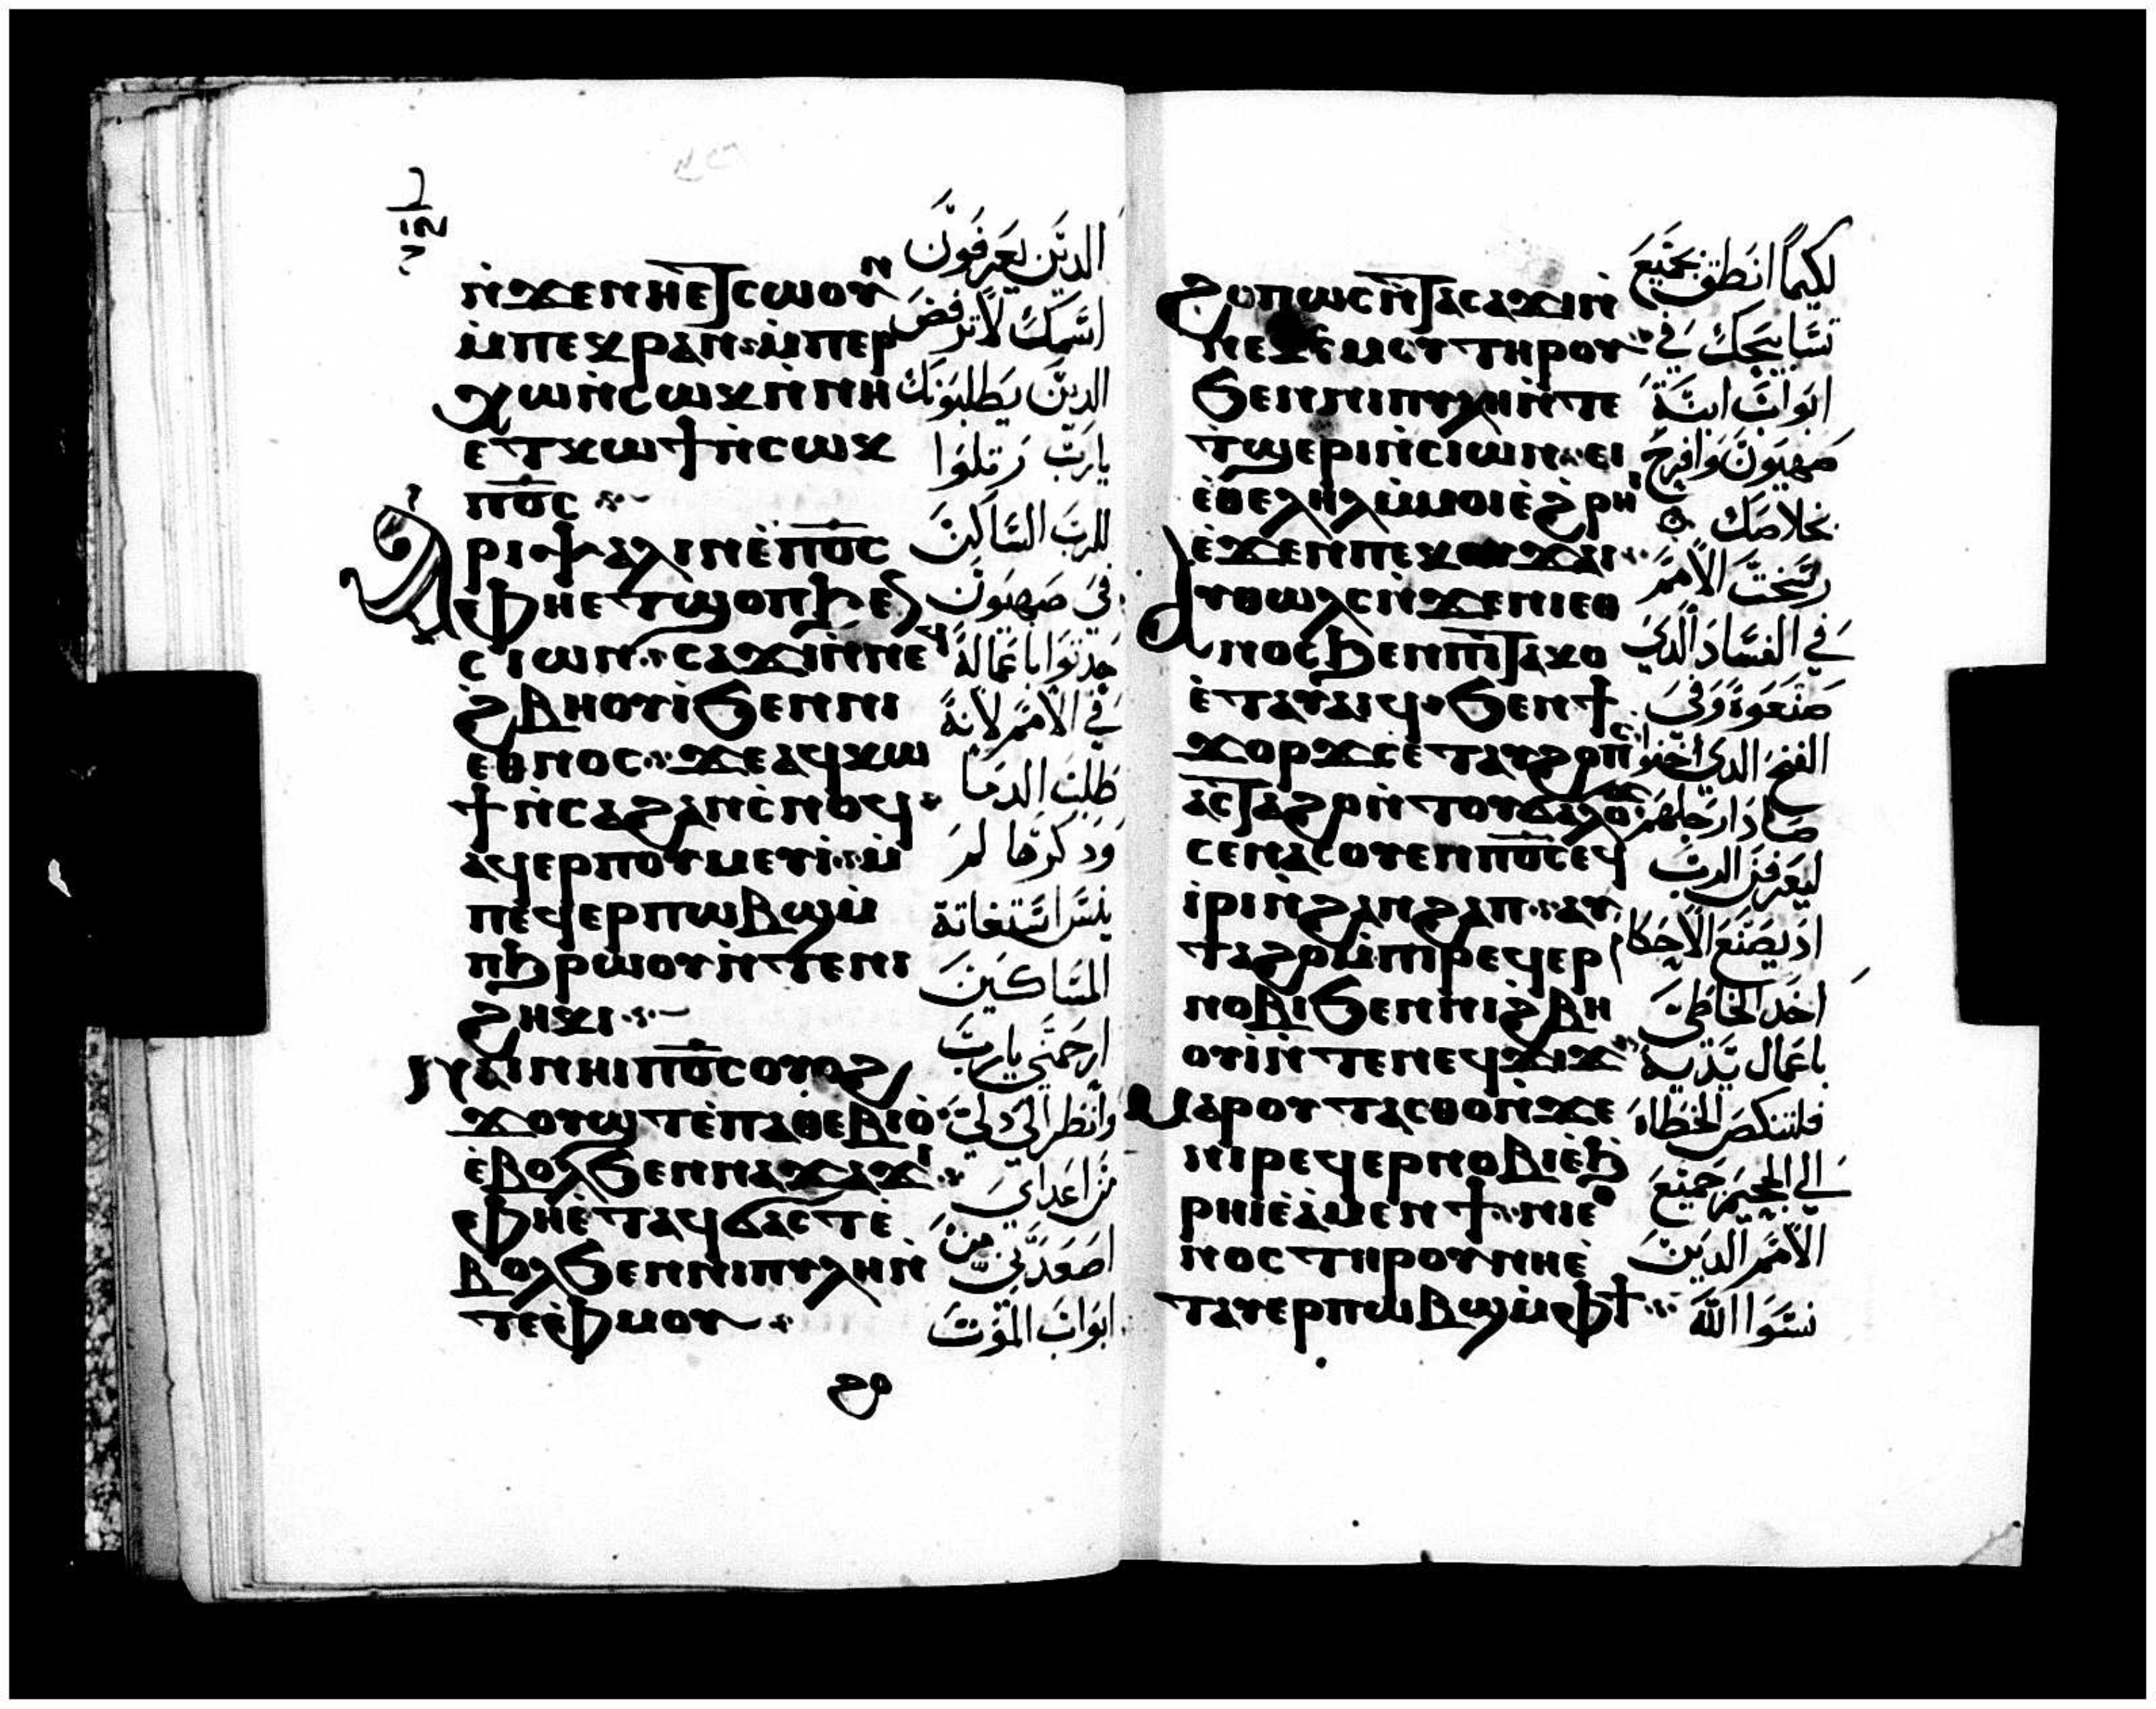 ⲛ̀ϫⲉⲛⲏⲉⲧⲥⲱⲟⲩⲛ
ⲙ̀ⲡⲉⲕⲣⲁⲛ: ⲙ̀ⲡⲉⲣ
ⲭⲱⲛ̀ⲥⲱⲕⲛ̀ⲛⲏ
ⲉⲧⲕⲱϯⲛ̀ⲥⲱⲕ
ⲡⲟ̅ⲥ̅
Ⲁⲣⲓⲯⲁⲗⲓⲛⲉ̀ⲡⲟ̅ⲥ̅
ⲫⲏⲉⲧϣⲟⲡϧⲉⲛ
ⲥⲓⲱⲛ: ⲥⲁϫⲓⲛ̀ⲛⲉϥ
ϩⲃⲏⲟⲩⲓ̀ϧⲉⲛⲛⲓ
ⲉⲑⲛⲟⲥ: ϫⲉⲁϥⲕⲱ
ϯⲛ̀ⲥⲁϩⲁⲛⲥ̀ⲛⲟϥ
ⲁϥⲉⲣⲡⲟⲩⲙⲉⲩⲓ̀: ⲙ̀
ⲡⲉϥⲉⲣⲡⲱⲃϣⲙ̀
ⲡϧⲣⲱⲟⲩⲛ̀ⲧⲉⲛⲓ
ϩⲏⲕⲓ
ⲛⲁⲓⲛⲏⲓⲡⲟ̅ⲥ̅ⲟⲩⲟϩ
ϫⲟⲩϣⲧⲉ̀ⲡⲁⲑⲉⲃⲓⲟ̀
ⲉ̀ⲃⲟⲗϧⲉⲛⲛⲁϫⲁϫⲓ
ⲫⲏⲉ̀ⲧⲁϥϭⲁⲥⲧⲉ̀
ⲃⲟⲗϧⲉⲛⲛⲓⲡⲩⲗⲏⲛ̀
ⲧⲉⲫ̀ⲙⲟⲩ
ϩⲟ
الدين يعرفون
اسمك لا ترفض
الدين يطلبونك
يارب رتلوا
للرب الساكن
في صهيون
حدثوا باعماله
في الامم لانه
طلب الدما
ودكرها لم
ينس استغاتة
المساكين
ارحمني يارب
وانظر الى دلي
من اعداي
اصعدني من
ابواب الموت
ϩⲟⲡⲱⲥⲛ̀ⲧⲁⲥⲁϫⲓⲛ̀
ⲛⲉⲕⲥ̀ⲙⲟⲩⲧⲏⲣⲟⲩ
ϧⲉⲛⲛⲓⲡⲩⲗⲏⲛ̀ⲧⲉ
ⲧ̀ϣⲉⲣⲓⲛ̀ⲥⲓⲱⲛ: ⲉⲓ
ⲉ̀ⲑⲉⲗⲏⲗⲙ̀ⲙⲟⲓⲉ̀ϩⲣⲏⲓ
ⲉ̀ϫⲉⲛⲡⲉⲕⲟⲩϫⲁⲓ
Ⲁⲩⲑⲱⲗⲥⲛ̀ϫⲉⲛⲓⲉⲑ
ⲛⲟⲥϧⲉⲛⲡⲓⲧⲁⲕⲟ
ⲉ̀ⲧⲁⲩⲁⲓϥ: ϧⲉⲛϯ
ϫⲟⲣϫⲥⲉ̀ⲧⲁⲩϩⲟⲡⲥ
ⲁⲥⲧⲁϩⲟⲛ̀ⲧⲟⲩϭⲁⲗⲟϫ
ⲥⲉⲛⲁⲥⲟⲩⲉⲛⲡⲟ̅ⲥ̅ⲉϥ
ⲓ̀ⲣⲓⲛ̀ϩⲁⲛϩⲁⲡ: ⲁⲩ
ⲧⲁϩⲟⲙ̀ⲡⲓⲣⲉϥⲉⲣ
ⲛⲟⲃⲓϧⲉⲛⲛⲓϩⲃⲏ
ⲟⲩⲓ̀ⲛ̀ⲧⲉⲛⲉϥϫⲓϫ
Ⲙⲁⲣⲟⲩⲧⲁⲥⲑⲟⲛ̀ϫⲉ
ⲛⲓⲣⲉϥⲉⲣⲛⲟⲃⲓⲉ̀ϧ
ⲣⲏⲓⲉ̀ⲁ̀ⲙⲉⲛϯ: ⲛⲓⲉⲑ
ⲛⲟⲥⲧⲏⲣⲟⲩⲛⲏⲉ̀
ⲧⲁⲩⲉⲣⲡⲱⲃϣⲙ̀ⲫϯ
لكيما انطق بجميع
تسابيحك في
ابواب ابنة
صهيون وافرح
بخلاصك
رسخت الامم
في الفساد الدي
صنعوه وفي
الفخ الدي اخفوا
صاد ارجلهم
ليعرفن الرب
اد يصنع الاحكام
اخد الخاطي
باعمال يديه
فلتنكص الخطاه
الي الجحيم جميع
الامم الدين
نسوا الله